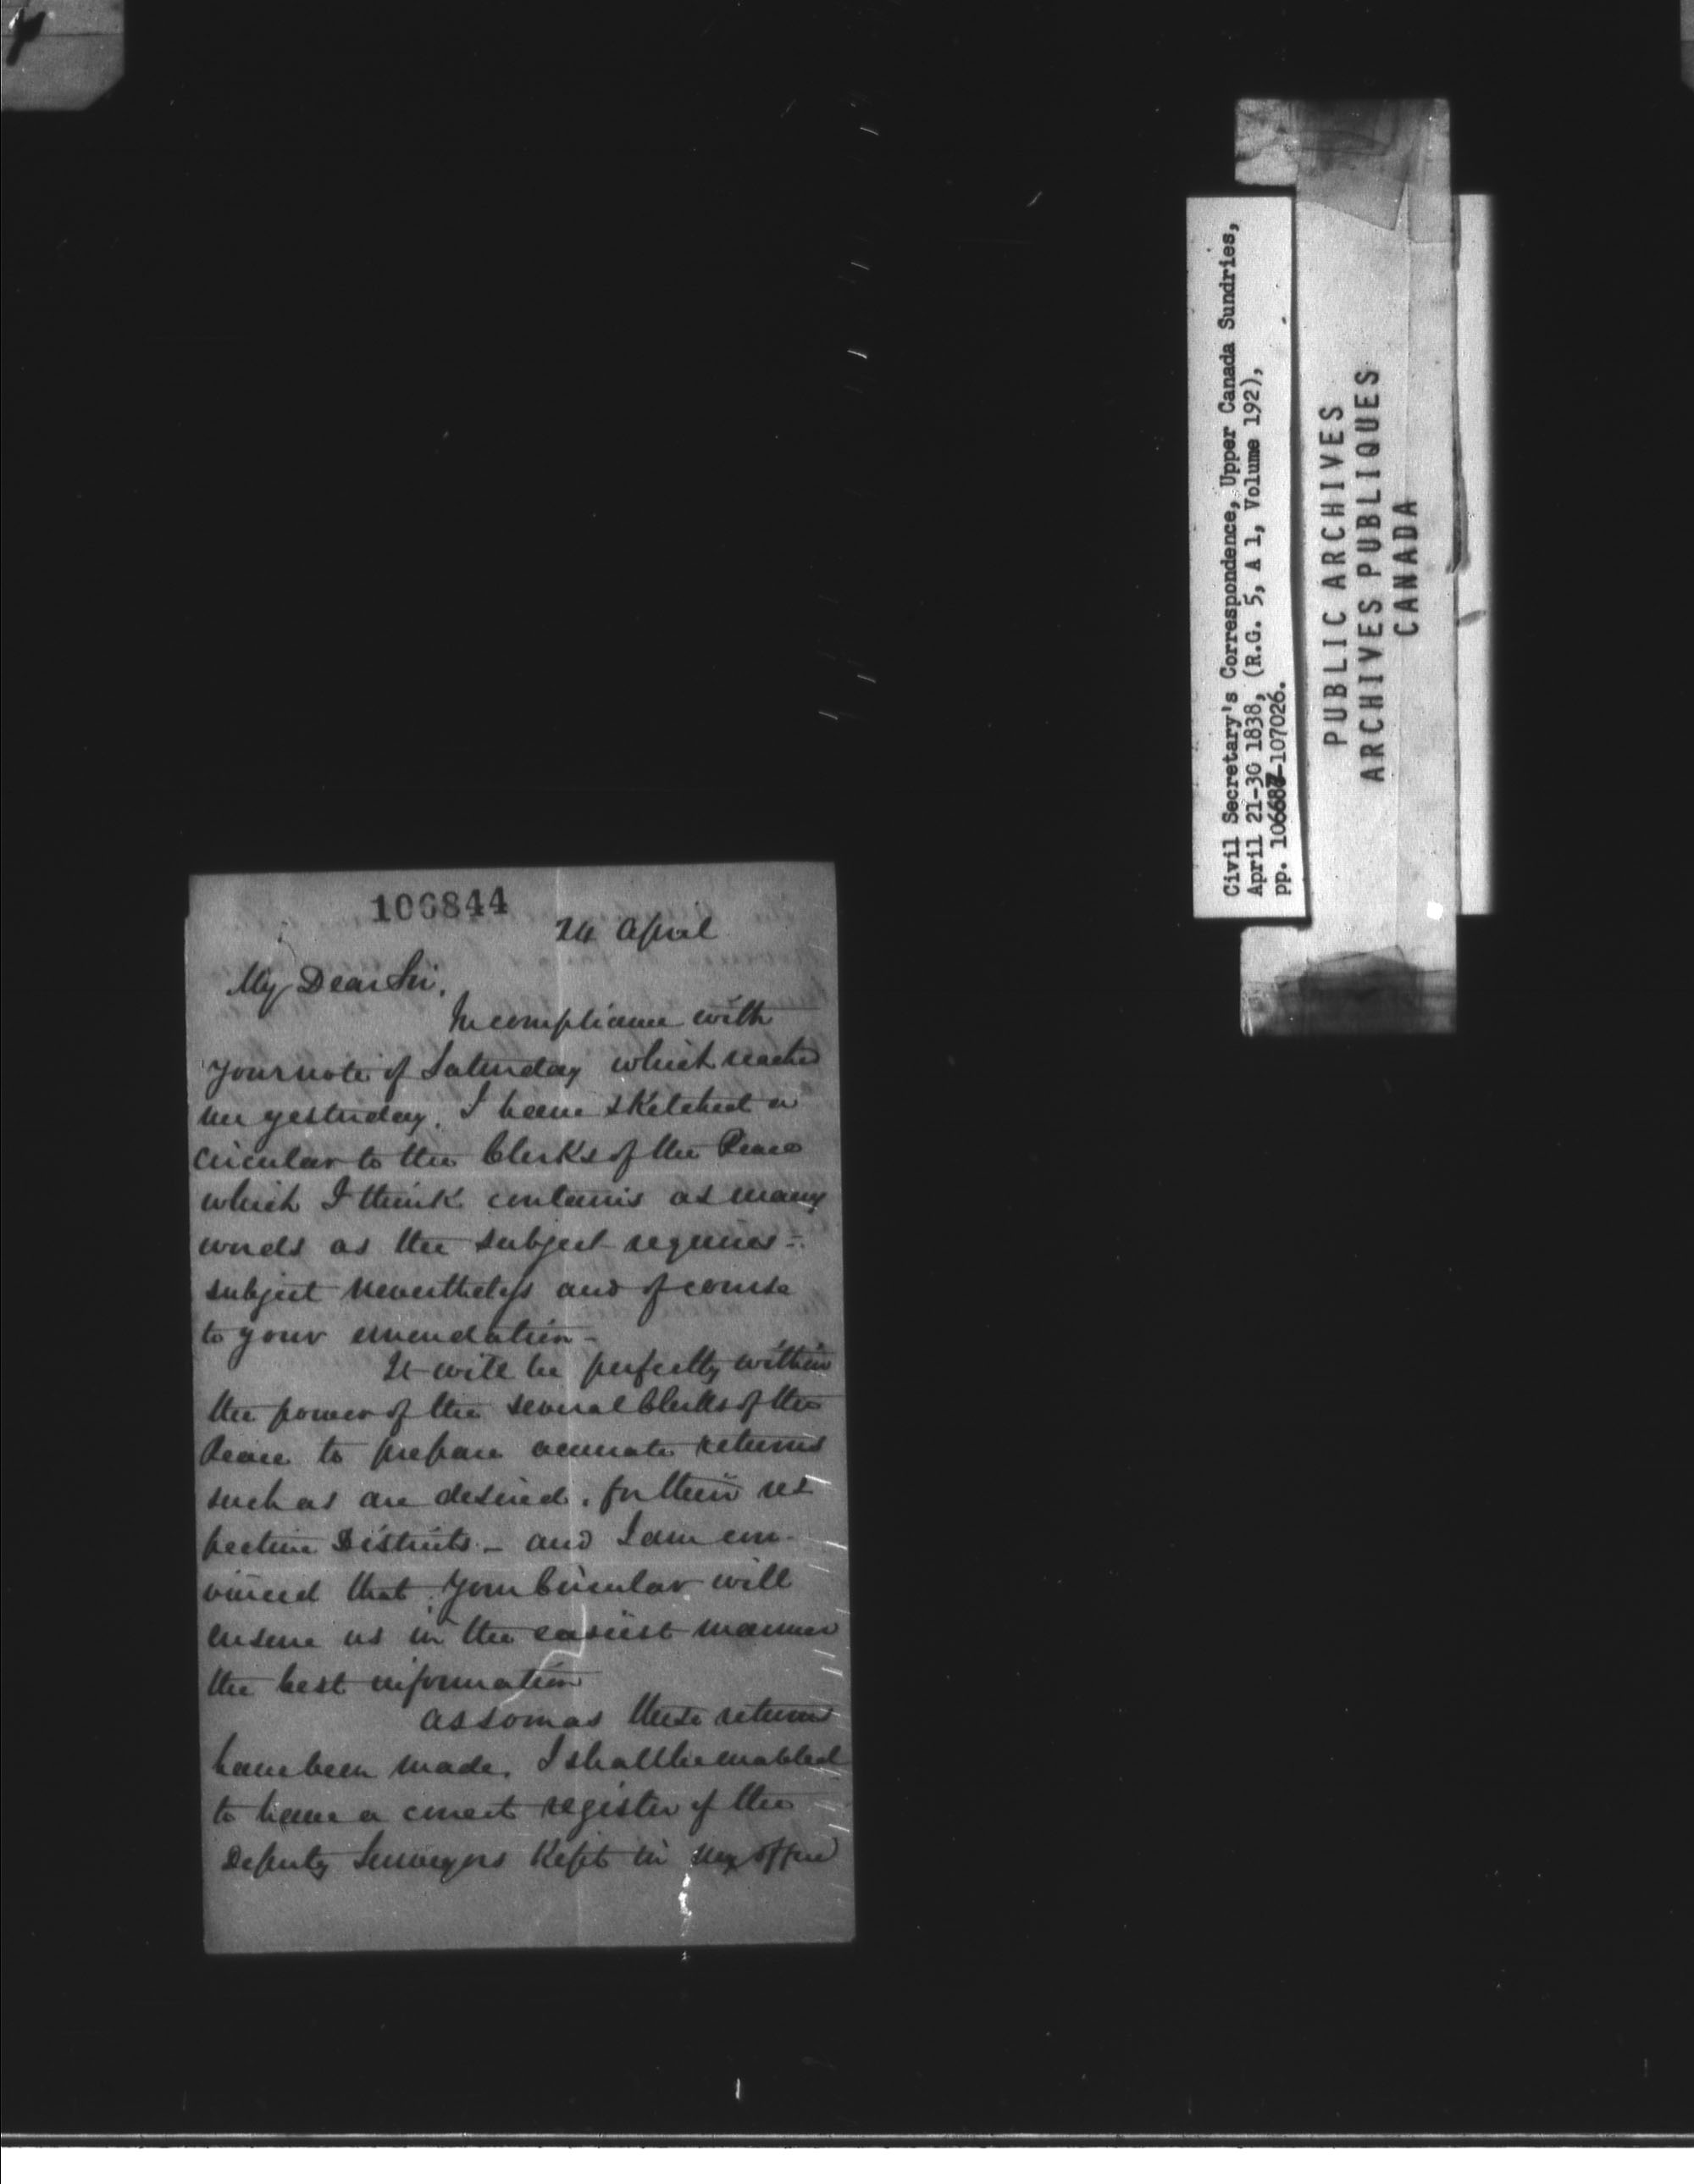 106844
24 April
My Dear Sir,
In compliance with
your note of Saturday which reached
me yesterday, I have sketched a
circular to the Clerks of the Peace
which I think contains as many
words as the subject requires -
subject nevertheless and of course
to your emendation -
It will be perfectly within
the power of the several Clerks of the
Peace to prepare accurate returns
such as are desired, for their res
pective Districts. - and I am con-
vinced that your Circular will
ensure us in the easiest manner
the best information
As soon as these returns
have been made, I shall be enabled
to have a correct register of the
Deputy Surveyors kept in my office
Civil Secretary's Correspondence, Upper Canada Sundries,
April 21-30 1838, (R.G. 5, A 1, Volume 192),
pp. 106687-107026.
PUBLIC ARCHIVES
ARCHIVES PUBLIQUES
CANADA